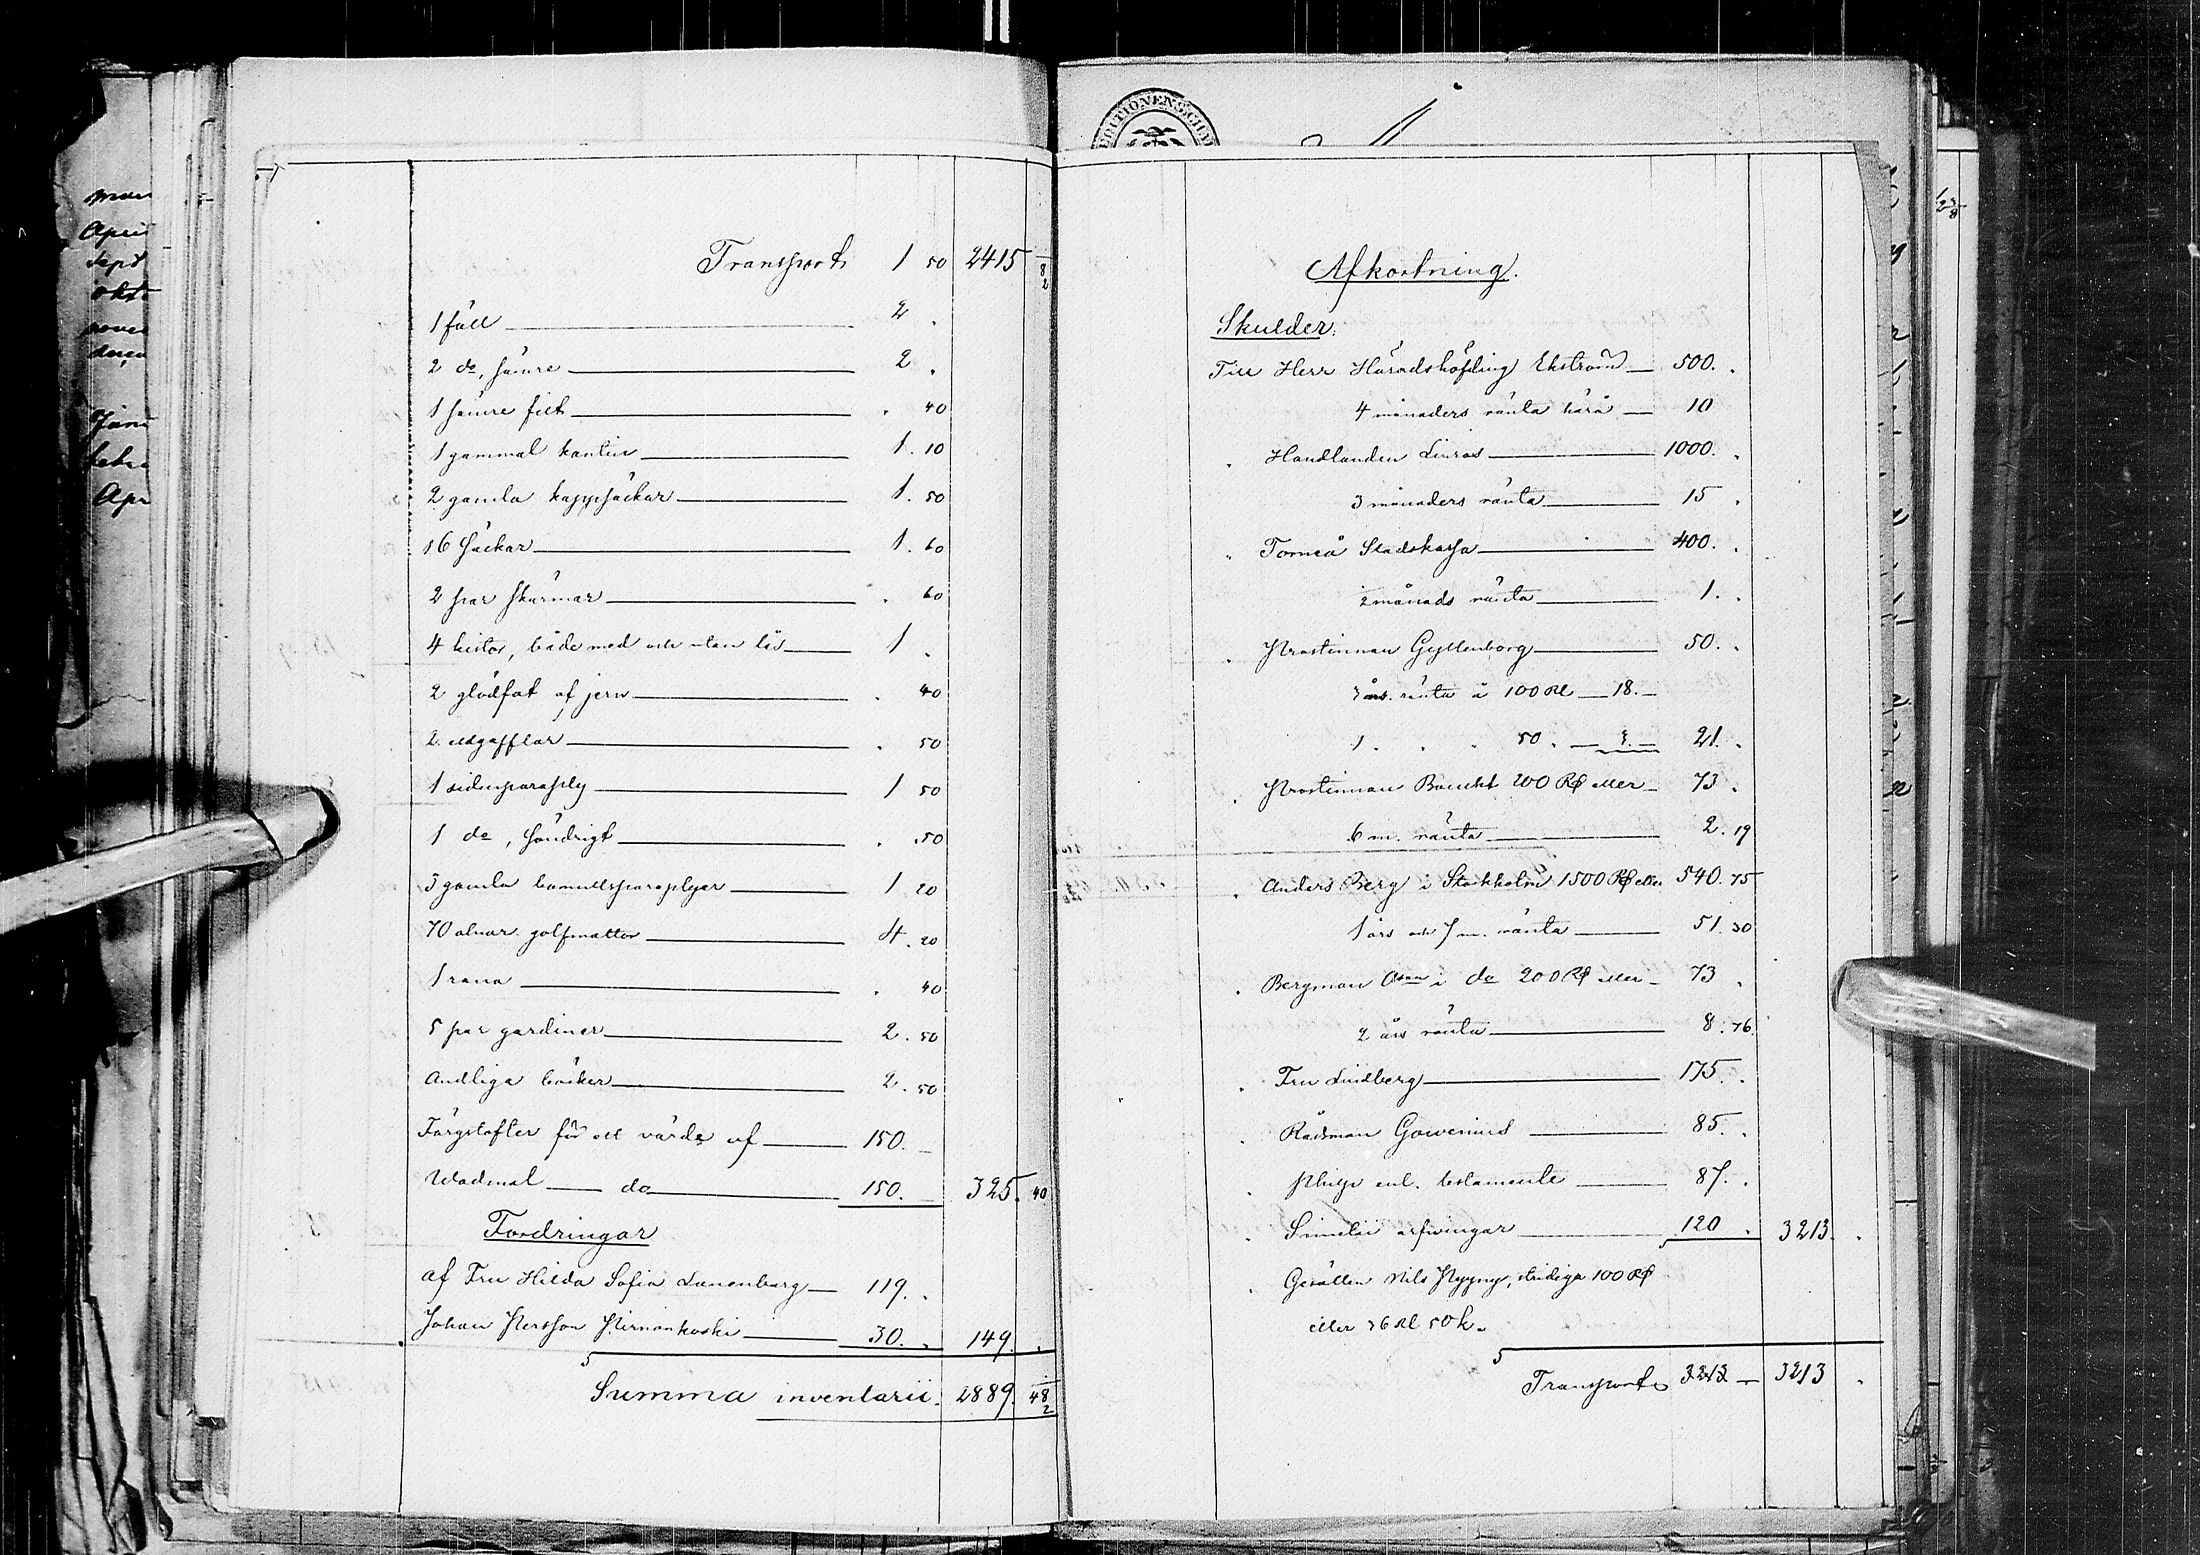 Transport 1 50 2415 8/2
1 fäll 2 .
2 do, sämre 2 .
1 sämre filt . 40
1 gammal kantin 1. 10
2 gamla kappsäckar 1. 50
16 säckar 1. 60
2 par skärmar . 60
4 kistor, både med och utan lås 1 .
2 glödfat af jern . 40
2 eldgafflar . 50
1 sidenparaply 1 50
1 do, söndrigt . 50
3 gamla bomullsparaplyer 1. 20
70 alnar golfmattor 4. 20
1 rana . 40
5 par gardiner 2. 50
Andliga böcker 2. 50
Färgstofter för ett värde af 150. –
Wadmal do 150. – 325. 40
Fordringar
af Fru Hilda Sofia Lunenburg 119. .
Johan Persson Pirnankoski 30. . 149. .
Summa inventarii. 2889. 48/2
Afkortning.
Skulder:
Till Herr Häradshöfding Ekström 500. .
4 månaders ränta härå 10
" Handlanden Linros 1000. .
3 månaders ränta 15 .
" Torneå Stadskassa 400. .
2 månads ränta 1. .
" Prostinnan Gyllenborg 50. .
3 års ränta å 100 Rl 18. –
1 " " 50 " 3. – 21. .
" Prostinnan 200 Rd eller 73 .
6 m. ränta 2. 19
" Anders Berg i Stockholm 1500 Rd eller 540. 75
1 års och 7 m. ränta 51. 30
" Bergman i do 200 Rd eller 73 .
2 års ränta 8. 76
" Fru Lindberg 175. .
" Rådman Gowenius 85. .
" enl. testamente 87. .
" arfwingar 120 . 3213. .
" Gesällen Nils Nygny, stridiga 100 Rd
eller 36 Rl 50 k.
Transport 3213 – 3213 .